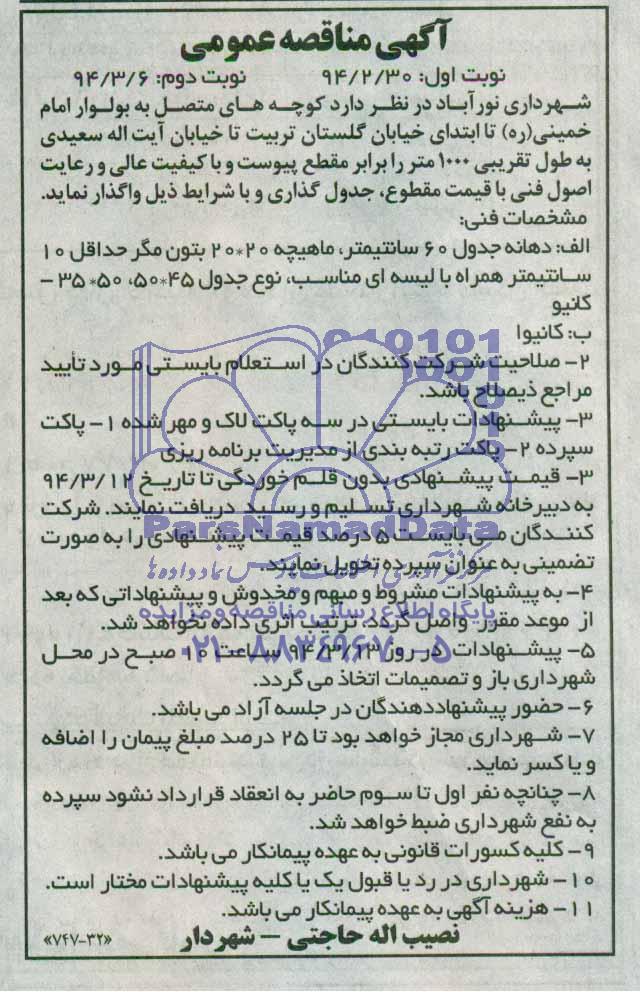 آگهی مناقصه عمومی
نوبت اول: ۹۴/۲/۳۰ نوبت دوم: ۹۴/۳/۶
شهرداری نورآباد در نظر دارد کوچه های متصل به بولوار امام
خمینی(ره) تا ابتدای خیابان گلستان تربیت تا خیابان آیت اله سعیدی
به طول تقریبی ۱۰۰۰ متر را برابر مقطع پیوست و با کیفیت عالی و رعایت
اصول فنی با قیمت مقطوع، جدول گذاری و با شرایط ذیل واگذار نماید.
مشخصات فنی:
الف: دهانه جدول ۶۰ سانتیمتر، ماهیچه ۲۰*۲۰ بتون مگر حداقل ۱۰
سانتیمتر همراه با لیسه ای مناسب، نوع جدول ۴۵*۵۰، ۵۰*۳۵ –
کانیو
ب: کانیوا
010101
۲- صلاحیت شرکت کنندگان در استعلام بایستی مورد تأیید
مراجع ذیصلاح باشد.
۳- پیشنهادات بایستی در سه پاکت لاک و مهر شده ۱- پاکت
سپرده ۲- پاکت رتبه بندی از مدیریت برنامه ریزی
۳- قیمت پیشنهادی بدون قلم خوردگی تا تاریخ ۹۴/۳/۱۲
به دبیرخانه شهرداری تسلیم و رسید دریافت نمایند. شرکت
ParsNamadData
کنندگان می بایست ۵ درصد قیمت پیشنهادی را به صورت
تضمینی به عنوان سپرده تحویل نمایند.
۴- به پیشنهادات مشروط و مبهم و مخدوش و پیشنهاداتی که بعد
پایگاه اطلاع رسانی مناقصه و مزایده
از موعد مقرر واصل گردد، ترتیب اثری داده نخواهد شد.
۰۲۱-۸۸۳۴۹۶۷۰-۵
۵- پیشنهادات در روز ۹۴/۳/۱۳ ساعت ۱۰ صبح در محل
شهرداری باز و تصمیمات اتخاذ می گردد.
۶- حضور پیشنهاددهندگان در جلسه آزاد می باشد.
۷- شهرداری مجاز خواهد بود تا ۲۵ درصد مبلغ پیمان را اضافه
و یا کسر نماید.
۸- چنانچه نفر اول تا سوم حاضر به انعقاد قرارداد نشود سپرده
به نفع شهرداری ضبط خواهد شد.
۹- کلیه کسورات قانونی به عهده پیمانکار می باشد.
۱۰- شهرداری در رد یا قبول یک یا کلیه پیشنهادات مختار است.
۱۱- هزینه آگهی به عهده پیمانکار می باشد.
نصیب اله حاجتی – شهردار «۷۴۷-۳۲»